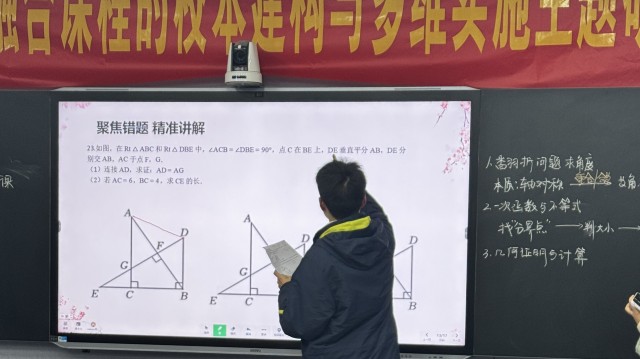 融合课程的校本建构与多维实施主题
聚焦错题 精准讲解
23.如图，在Rt△ABC和Rt△DBE中，∠ACB=∠DBE=90°，点C在BE上，DE垂直平分AB，DE分
别交AB、AC于点F、G.
（1）连接AD，求证：AD=AG
（2）若AC=6，BC=4，求CE的长.
A
D
F
G
E
C
B
A
G
E
C
D
D
B
课
1.类羽折问题 求角度
本质：轴对称
2.一次函数与不等式
找"分界点"→判大小→
3.几何证明与计算